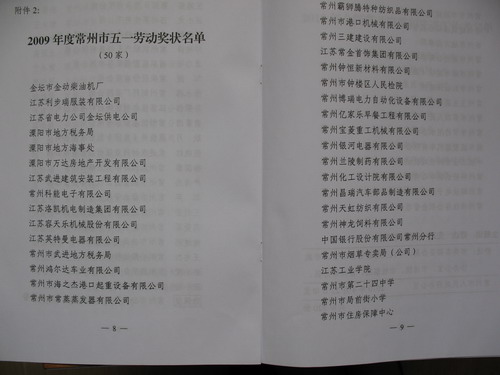 附件 2:
2009 年度常州市五一劳动奖状名单
(50 家)
金坛市金动柴油机厂
江苏利步瑞服装有限公司
江苏省电力公司金坛供电公司
溧阳市地方税务局
溧阳市地方海事处
溧阳市万达房地产开发有限公司
江苏武进建筑安装工程有限公司
常州科能电子有限公司
江苏洛凯机电制造集团有限公司
江苏容天乐机械股份有限公司
江苏英特曼电器有限公司
常州市武进地方税务局
常州鸿尔达车业有限公司
常州市海之杰港口起重设备有限公司
常州市常蒸蒸发器有限公司
— 8 —
常州霸狮腾特种纺织品有限公司
常州市港口机械有限公司
常州三建建设有限公司
江苏常金首饰集团有限公司
常州钟恒新材料有限公司
常州市钟楼区人民检院
常州博瑞电力自动化设备有限公司
常州亿家乐早餐工程有限公司
常州宝菱重工机械有限公司
常州银河电器有限公司
常州兰陵制药有限公司
常州化工设计院有限公司
常州昌瑞汽车部品制造有限公司
常州天虹纺织有限公司
常州神龙饲料有限公司
中国银行股份有限公司常州分行
常州市烟草专卖局（公司）
江苏工业学院
常州市第二十四中学
常州市局前街小学
常州市住房保障中心
— 9 —